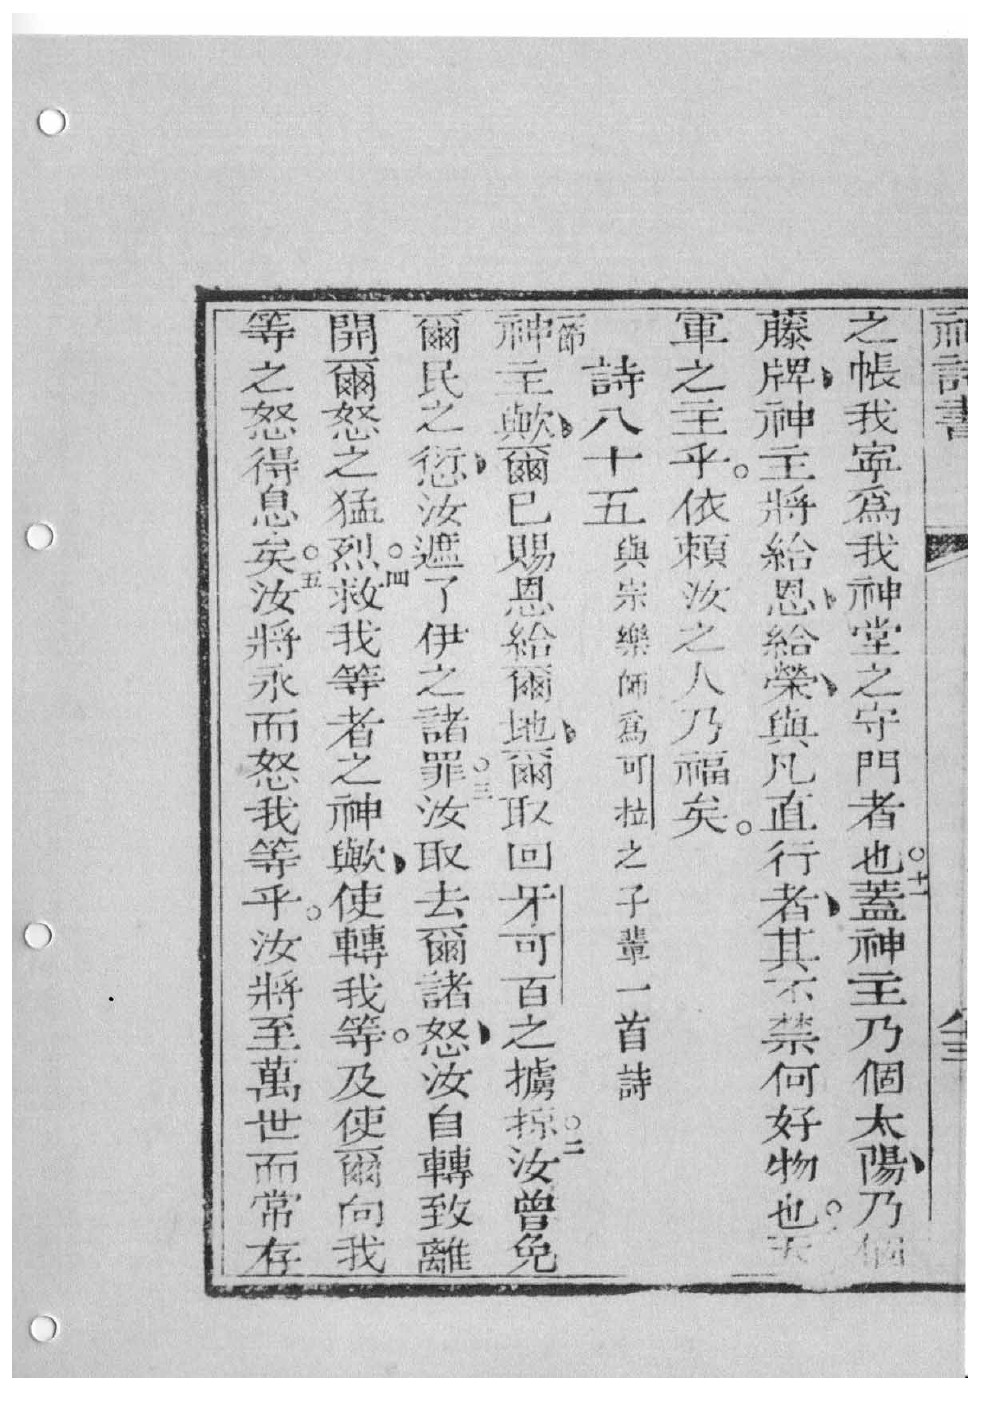 神詩書
之帳我寧爲我神堂之守門者也○十一蓋神主乃個太陽乃個
藤牌神主將給恩給榮與凡直行者其不禁何好物也○天
軍之主乎。依賴汝之人乃福矣。
詩八十五與崇樂師爲可拉之子輩一首詩
一節神主歟爾已賜恩給爾地爾取回牙可百之擄掠○二汝曾免
爾民之愆汝遮了伊之諸罪○三汝取去爾諸怒汝自轉致離
開爾怒之猛烈○四救我等者之神歟使轉我等。及使爾向我
等之怒得息矣○五汝將永而怒我等乎。汝將至萬世而常存